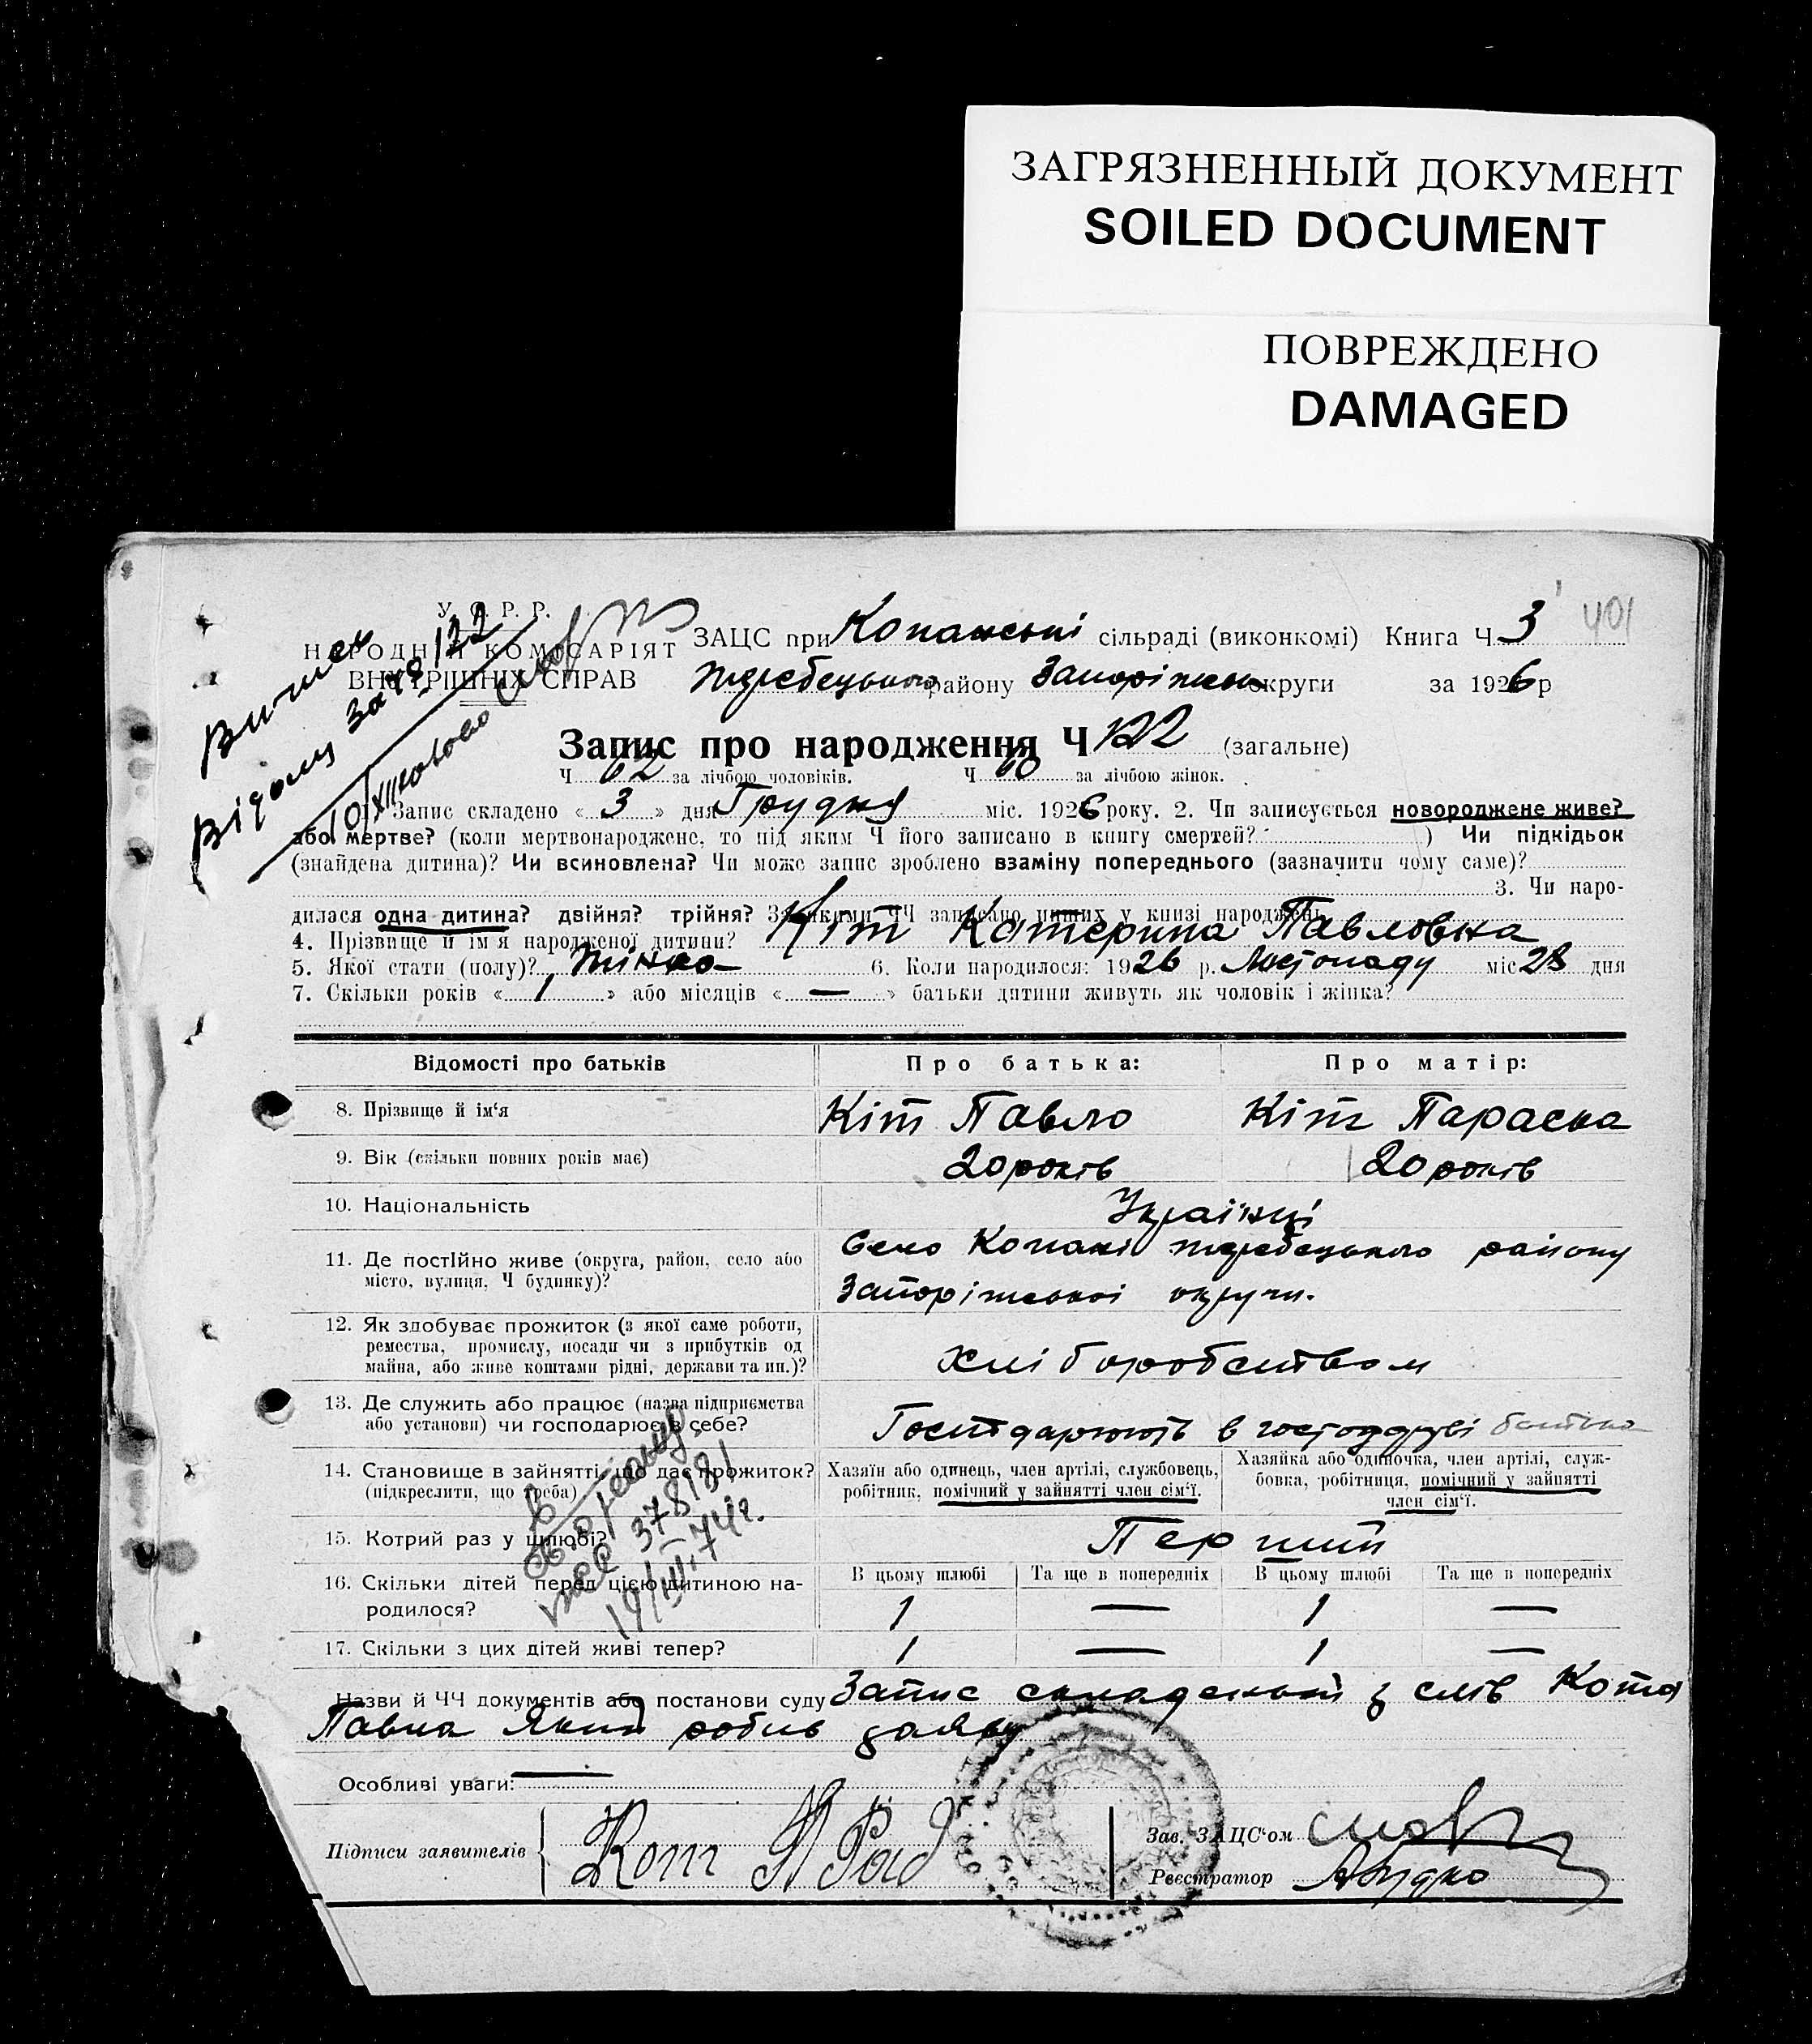 ЗАГРЯЗНЕННЫЙ ДОКУМЕНТ
SOILED DOCUMENT
ПОВРЕЖДЕНО
DAMAGED
У. С. Р. Р.
НАРОДНИЙ КОМІСАРІЯТ
ВНУТРІШНІХ СПРАВ
Витяг
Відому за № 122
ЗАЦС при Копанській сільраді (виконкомі) Книга Ч. 3 401
Жеребецького району Запоріжської округи за 1926 р
Запис про народження Ч 122 (загальне)
Ч 62 за лічбою чоловіків. Ч 60 за лічбою жінок.
Запис складено « 3 » дня Грудня міс. 1926 року. 2. Чи записується новороджене живе?
або мертве? (коли мертвонароджене, то під яким Ч його записано в книгу смертей? ) Чи підкідьок
(знайдена дитина)? Чи всиновлена? Чи може запис зроблено взаміну попереднього (зазначити чому саме)?
3. Чи наро-
дилася одна дитина? двійня? трійня? За якими ЧЧ записано инших у книзі народжень
4. Прізвище й ім'я народженої дитини? Кіт Катерина Павловна
5. Якої стати (полу)? Жінка 6. Коли народилося: 1926 р. Листопаду міс 28 дня
7. Скільки років « 1 » або місяців « — » батьки дитини живуть як чоловік і жінка?
Відомості про батьків Про батька: Про матір:
8. Прізвище й ім'я Кіт Павло Кіт Параска
9. Вік (скільки повних років має) 20 років 20 років
10. Національність Українці
11. Де постійно живе (округа, район, село або Село Копані жеребецького району
місто, вулиця, Ч будинку)? Запоріжської округи.
12. Як здобуває прожиток (з якої саме роботи,
ремества, промислу, посади чи з прибутків од
майна, або живе коштами рідні, держави та ин.)? Хліборобством
13. Де служить або працює (назва підприємства
або установи) чи господарює в себе? Господарюють в господарстві батька
14. Становище в зайнятті, що дає прожиток? Хазяїн або одинець, член артілі, службовець, Хазяйка або одиночка, член артілі, служ-
(підкреслити, що треба) робітник, помічний у зайнятті член сім'ї. бовка, робітниця, помічний у зайнятті
член сім'ї.
378181
19/III.74г.
15. Котрий раз у шлюбі? Перший
16. Скільки дітей перед цією дитиною на- В цьому шлюбі Та ще в попередніх В цьому шлюбі Та ще в попередніх
родилося? 1 — 1 —
17. Скільки з цих дітей живі тепер? 1 — 1 —
Назви й ЧЧ документів або постанови суду Запис складений з слів Кота
Павла Який робив заяву
Особливі уваги: —
Підписи заявителів Кот Зав. ЗАЦС'ом
Реєстратор